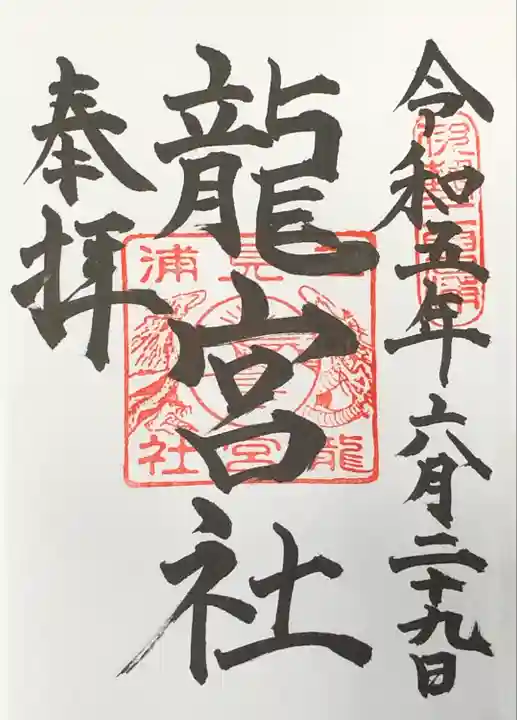 令和五年六月二十九日
龍宮社
奉拝
二見浦
龍宮社